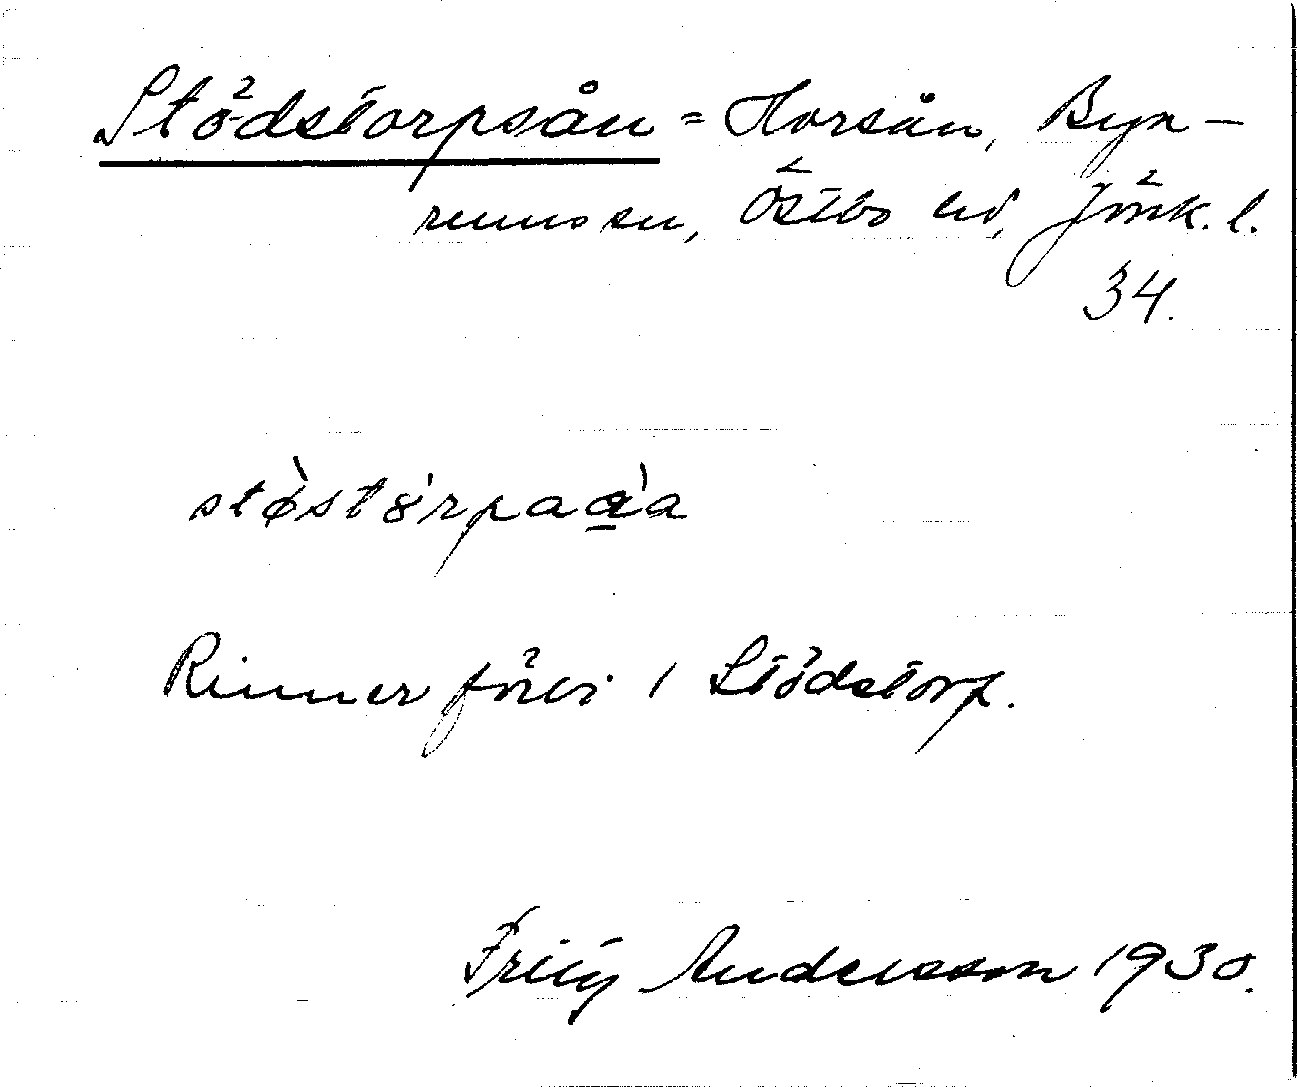 Stödstorpsån = Horsån, Byn-
rumssn, Östbo hd, Jönk. l.
34.
støstȣ́rpaa̱̍a
Rinner förbi i Stödstorp.
Fritz Andersson 1930.